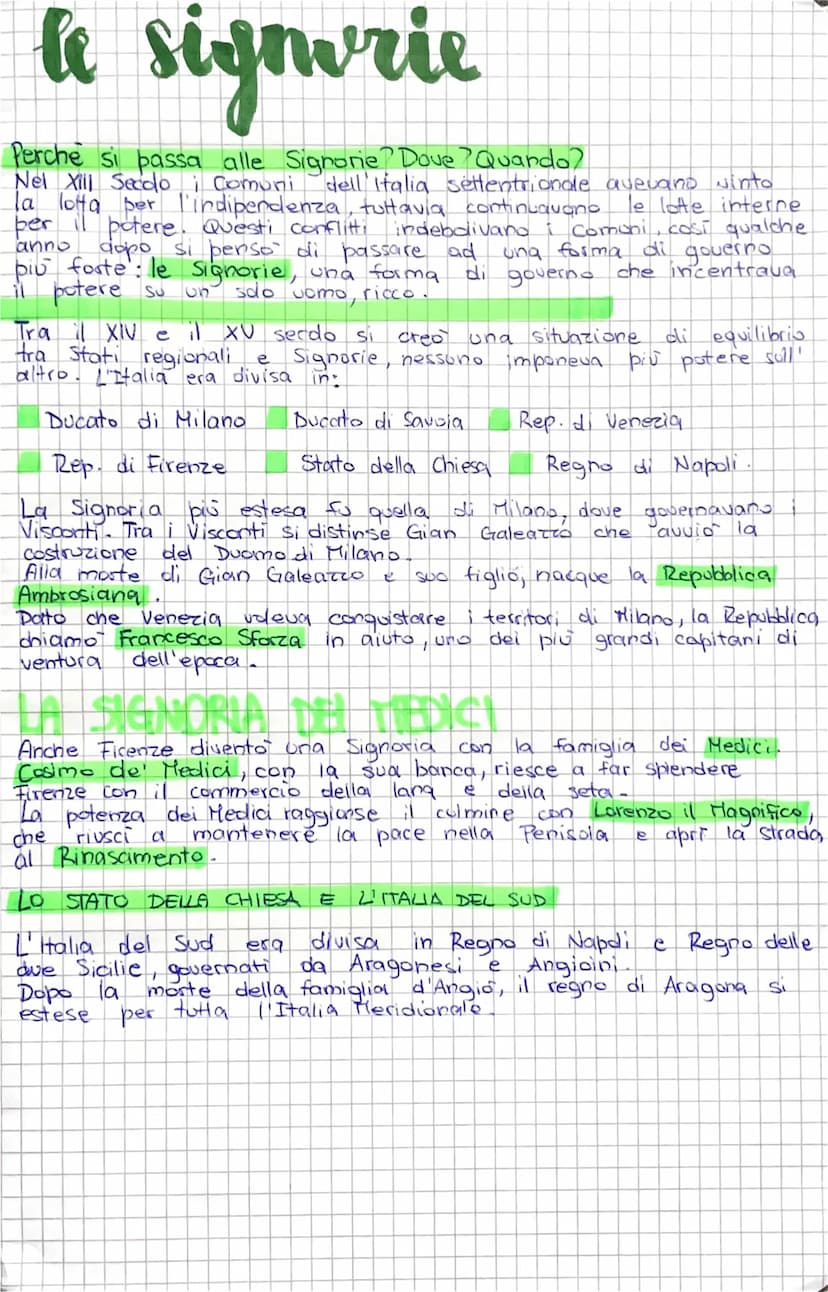 le signorie
Perchè si passa alle Signorie? Dove? Quando?
Nel XIII Secolo i Comuni dell'Italia settentrionale avevano vinto
la lotta per l'indipendenza, tuttavia continuavano le lotte interne
per il potere. Questi conflitti indebolivano i comuni, così qualche
anno dopo si pensò di passare ad una forma di governo
più forte: le Signorie, una forma di governo che incentrava
il potere su un solo uomo, ricco.
Tra il XIV e il XV secolo si creò una situazione di equilibrio
tra Stati regionali e Signorie, nessuno imponeva più potere sull'
altro. L'Italia era divisa in:
Ducato di Milano Ducato di Savoia Rep. di Venezia
Rep. di Firenze Stato della Chiesa Regno di Napoli.
La Signoria più estesa fu quella di Milano, dove governavano i
Visconti. Tra i Visconti si distinse Gian Galeazzo che avviò la
costruzione del Duomo di Milano.
Alla morte di Gian Galeazzo e suo figlio, nacque la Repubblica
Ambrosiana.
Dato che Venezia voleva conquistare i territori di Milano, la Repubblica
chiamò Francesco Sforza in aiuto, uno dei più grandi capitani di
ventura dell'epoca.
LA SIGNORIA DEI MEDICI
Anche Firenze diventò una Signoria con la famiglia dei Medici.
Cosimo de' Medici, con la sua banca, riesce a far splendere
Firenze con il commercio della lana e della seta.
La potenza dei Medici raggiunse il culmine con Lorenzo il Magnifico,
che riuscì a mantenere la pace nella Penisola e aprì la strada
al Rinascimento.
LO STATO DELLA CHIESA E L'ITALIA DEL SUD
L'Italia del Sud era divisa in Regno di Napoli e Regno delle
due Sicilie, governati da Aragonesi e Angioini.
Dopo la morte della famiglia d'Angiò, il regno di Aragona si
estese per tutta l'Italia Meridionale.